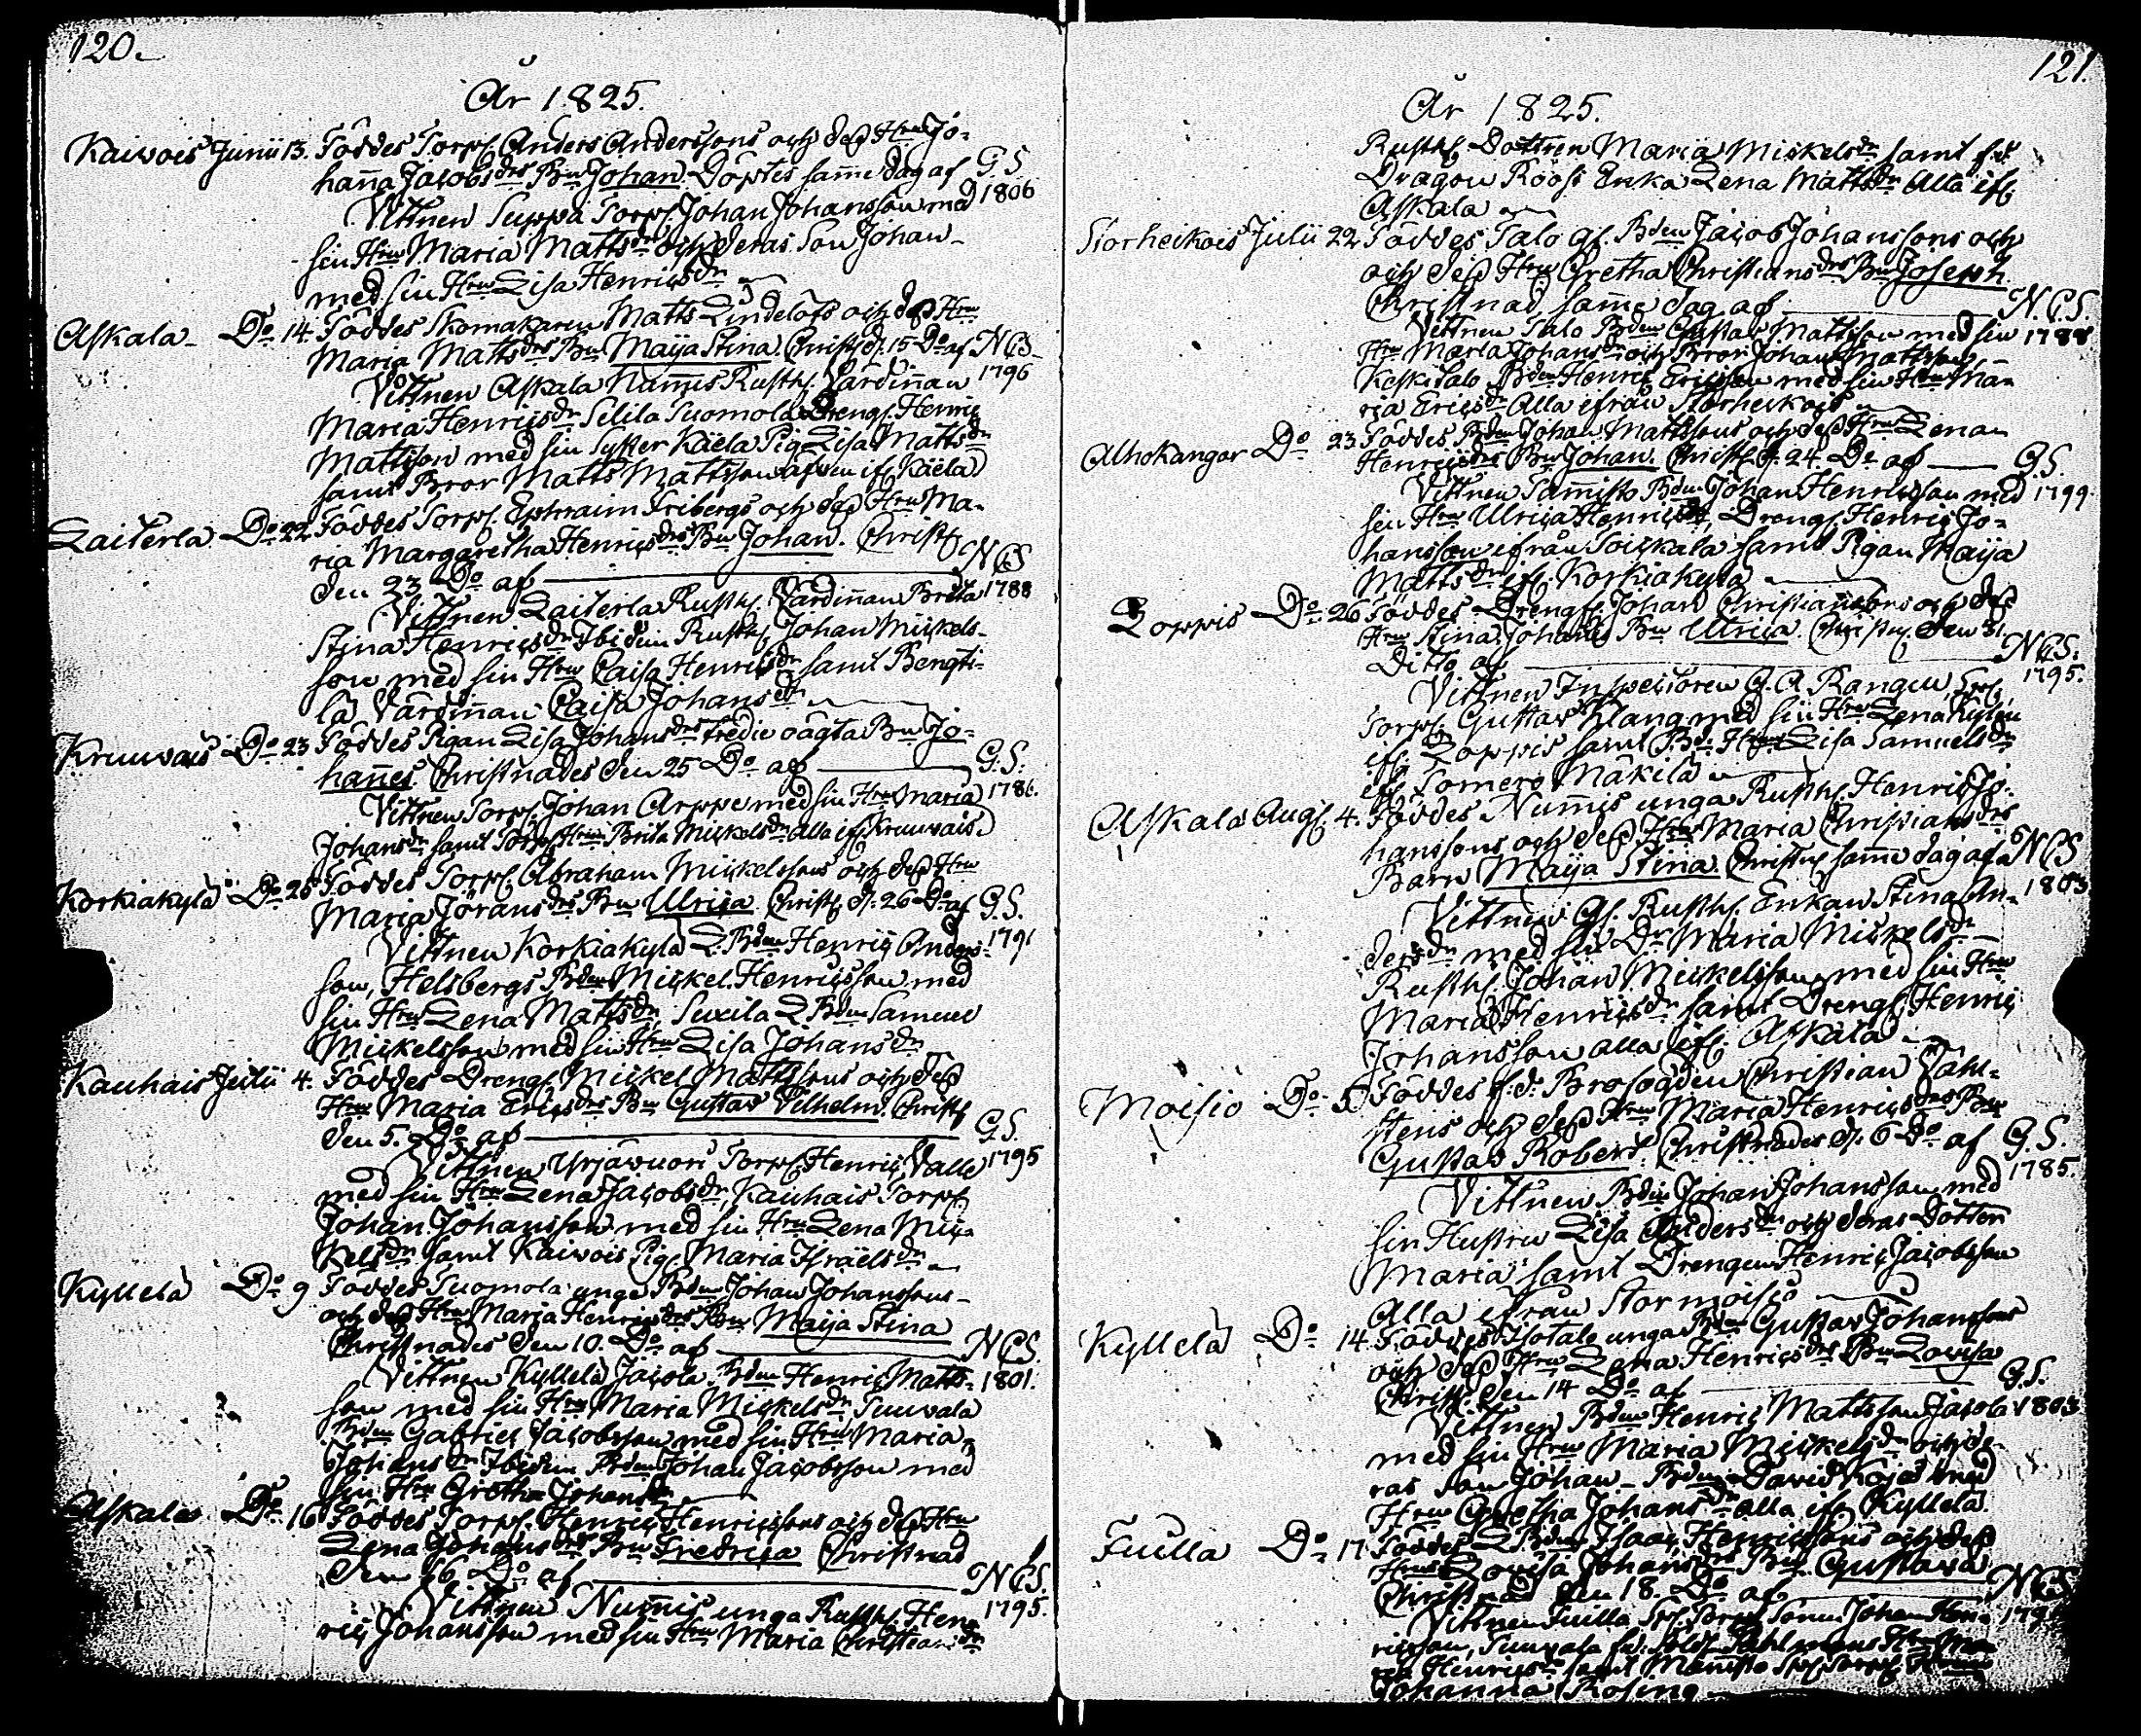 120.
År 1825.
Kaivois Junii 13. Föddes Torp. Anders Anderssons och deß Hru Jo-
hanna Jacobsdrs Bn Johan. Döptes samme dag af G.S.
Vittnen Torp. Johan Johansson med 1806
sin Hru Maria Mattsdr och deras Son Johan
med sin Hru Lisa Henricsdr
Askala Do 14. Föddes Skomakaren Matts Lindelöfs och deß Hru
Maria Mattsdrs Bn Maija Stina. Christ. d. 15 Do af NCS
Vittnen Askala Nummis Rusth. Värdinnan 1796
Maria Henricsdr Suomola Drengs. Henric
Mattsson med sin Syster Käela Pig. Lisa Mattsdr
samt Bror Matts Mattsson ifr. Käela
Laiterla Do 22 Föddes Torp. Ephraim Fribergs och deß Hru Ma-
ria Margaretha Henricsdrs Bn Johan. Christ.
den 23 Do af NCS
Vittnen Laiterla Rusth. Värdinnan Brita 1788
Stina Henricsdr Ibidem Rusth. Johan Mickels-
son med sin Hru Caisa Henricsdr samt Bengti-
lä Värdinnan Caisa Johansdr
Kruuvais Do 23 Föddes Pigan Lisa Johansdrs tredie oägta Bn Jo-
hannes Christnades den 25 Do af G.S.
Vittnen Torp. Johan Arppe med sin Hru Maria 1786.
Johansdr samt Torp. Hru Brita Mickelsdr alla ifr. Kruuvais
Korkiakylä Do 25 Föddes Torp. Abraham Mickelssons och deß Hru
Maria Jöransdrs Bn Ulrica Christ. d. 26 Do af G.S.
Vittnen Korkiakylä L. Bden Henric Anders- 1791
son, Helsbergs Bden Mickel Henricsson med
sin Hru Lena Mattsdr Suxila L. Bden Samuel
Mickelsson med sin Hru Lisa Johansdr
Kauhais Julii 4. Föddes Drengs. Mickel Mattssons och deß
Hru Maria Ericsdrs Bn Gustav Vilhelm. Christ.
den 5. Do af G.S.
Vittnen Yrjävuori Torp. Henric Valle 1795
med sin Hru Lena Jacobsdr, Kauhais Torp.
Johan Johansson med sin Hru Lena Mic-
kelsdr samt Kaivois Pig. Maria Israëlsdr
Kyllelä Do 9 Föddes Suomola unga Bden Johan Johanssons
och deß Hru Maria Henricsdrs Bn Maija Stina
Christnades den 10. Do af NCS.
Vittnen Kyllelä Jacola Bden Henric Matts- 1801.
son med sin Hru Maria Mickelsdr Suuvala
Bden Gabriel Jacobsson med sin Hru Maria
Johansdr Ibidem Bden Johan Jacobsson med
sin Hru Gretha Johansdr
Askala Do 16 Föddes Torp. Henric Henricssons och deß Hru
Lena Johansdrs Bn Fredrica Christnad
den 16 Do af NCS.
Vittnen Nummis unga Rusth. Hen- 1795.
ric Johansson med sin Hru Maria Christiansdr
121.
År 1825.
Rusth. Dottren Maria Mickelsdr samt f.d.
Dragon Röösi Enka Lena Mattsdr Alla ifr.
Askala
Storheikois Julii 22 Föddes Talo Bden Jacob Johanssons och
och deß Hru Gretha Christiansdrs Bn Joseph
Christnad samme dag af N.C.S.
Vittnen Talo Bden Gustav Mattsson med sin 1788
Hru Maria Johansdr och Bror Johan Mattsson,
Keskitalo Bden Henric Ericsson med sin Hru Ma-
ria Ericsdr Alla ifrån Storheikois
Alhokangar Do 23 Föddes Bden Johan Mattssons och deß Hru Lena
Henricsdrs Bn Johan. Christ. d. 24. Do af G.S.
Vittnen Bden Johan Henricsson med 1799.
sin Hru Ulrica Henricsdr, Drengs. Henric Jo-
hansson ifrån Soickala samt Pigan Maija
Mattsdr ifr. Korkiakylä
Loppis Do 26 Föddes Drengs. Johan Christianssons och deß
Hru Stina Johansdrs Bn Ulrica. Christn. den 31
Ditto af NCS.
Vittnen Inspectoren Rangen 1795.
Torp. Gustav Klang med sin Hru Lena
ifr. Loppis samt Bd. Hru Lisa Samuelsdr
ifr. Somero Mäkilä
Askala Aug. 4. Föddes Nummis unga Rusth. Henric Jo-
hanssons och deß Hru Maria Christiansdrs
Barn Maija Stina. Christn. samme dag af NCS
Vittnen Gl. Rusth. Enkan Stina An- 1803
dersdr med sin Dr Maria Mickelsdr
Rusth. Johan Mickelsson med sin Hru
Maria Henricsdr samt Drengs. Henric
Johansson alla ifr. Askala
Moisio Do 5 Föddes f.d. Brofogden Christian Vahl-
stens och deß Hru Maria Henricsdrs Bn
Gustav Robert. Christnades d. 6 Do af G.S.
Vittnen Bden Johan Johansson med 1785.
sin Hustru Lisa Andersdr och deras Dotter
Maria samt Drengen Henric Jacobsson
Alla ifrån Stormoisio
Kyllelä Do 14 Föddes Isotalo unga Bden Gustav Johanssons
och deß Hru Lena Henricsdrs Bn Lovisa
Christ. den 14 Do af G.S.
Vittnen Bden Henric Mattsson Jacola 1803
med sin Hru Maria Mickelsdr och de-
ras son Johan Bden David med
Hru Gretha Johansdr alla ifr. Kyllelä
Do 17 Föddes L. Bden Isaac Henricssons och deß
Hru Lovisa Johansdrs Bn Gustava
Christnad den 18. Do af NCS
Vittnen Johan Hen-
ricsson, Suuvala Hru Ma-
ria Henricsdr samt
Johanna Rosing